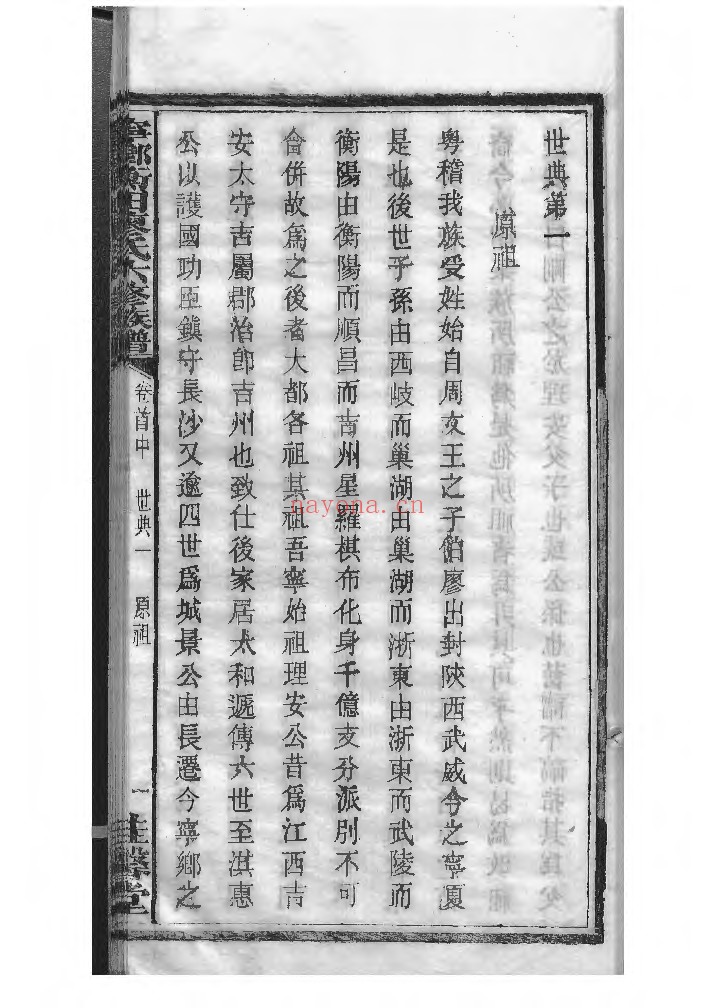 世典第一
原祖
粵稽我族受姓始自周文王之子伯廖出封陝西武威今之寧夏
是也後世子孫由西岐而巢湖由巢湖而浙東由浙東而武陵而
衡陽由衡陽而順昌而吉州星羅棋布化身千億支分派別不可
合併故為之後者大都各祖其祖吾寧始祖理安公昔為江西吉
安太守吉屬郡治卽吉州也致仕後家居太和遞傳六世至淇惠
公以護國功臣鎮守長沙又逾四世爲城景公由長遷今寧鄉之
寧鄉衡田廖氏六修族譜
卷首中 世典一 原祖
一
nayona.cn